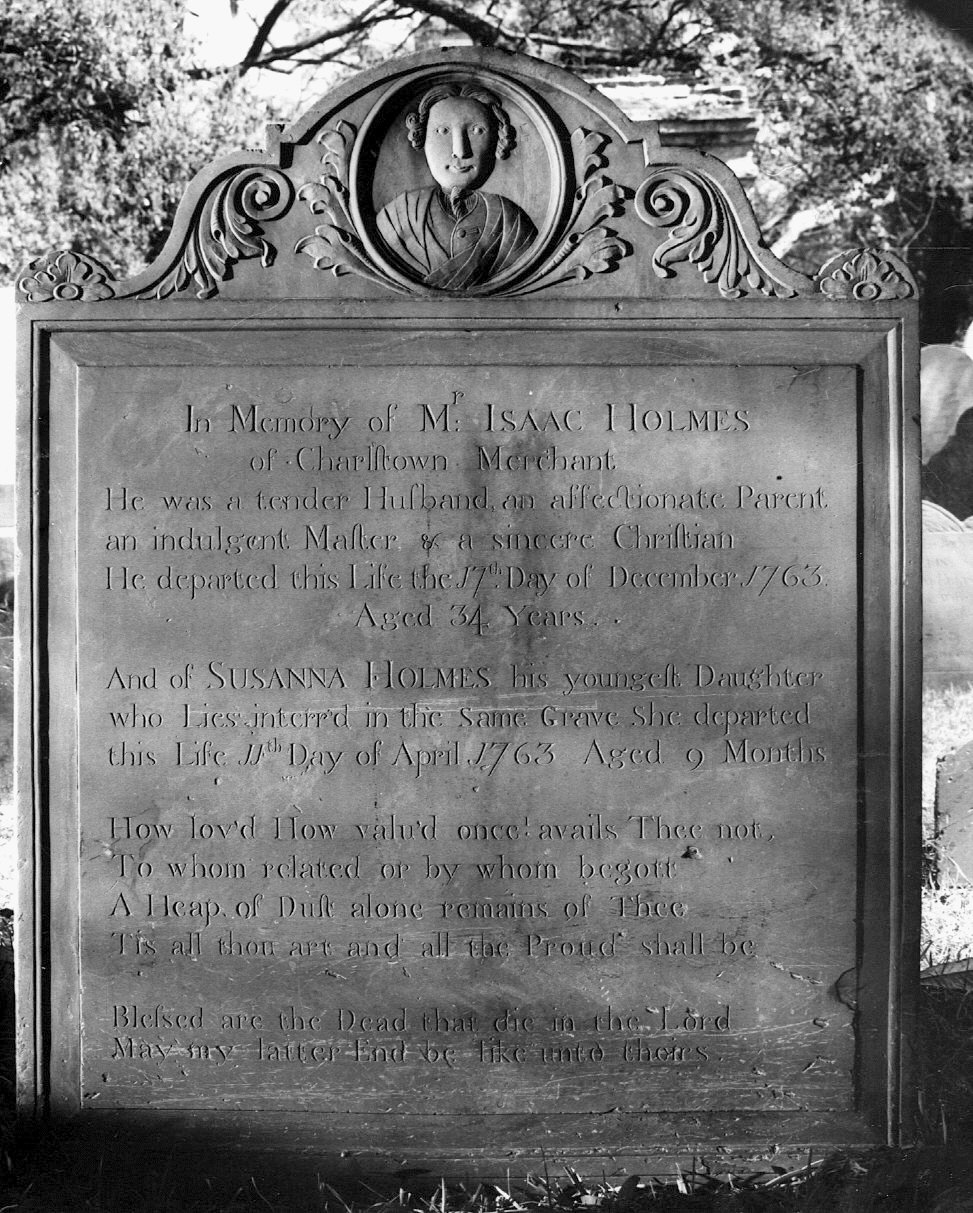 In Memory of Mʳ: ISAAC HOLMES
of Charlſtown Merchant
He was a tender Huſband, an affectionate Parent
an indulgent Maſter & a sincere Chriſtian
He departed this Life the 17ᵗʰ Day of December 1763.
Aged 34 Years.
And of SUSANNA HOLMES his youngeſt Daughter
who Lies interr'd in the Same Grave She departed
this Life 11ᵗʰ Day of April 1763 Aged 9 Months
How lov'd How valu'd once! avails Thee not,
To whom related or by whom begott
A Heap of Duſt alone remains of Thee
Tis all thou art and all the Proud shall be
Bleſsed are the Dead that die in the Lord
May my latter End be like unto theirs.